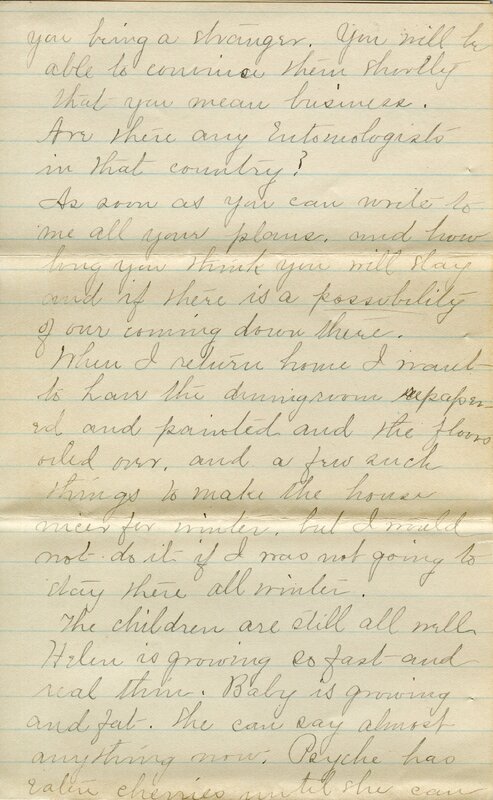 you being a stranger. You will be
able to convince them shortly
that you mean business.
Are there any Entomologists
in that country?
As soon as you can write to
me all your plans, and how
long you think you will stay
and if there is a possibility
of our coming down there.
When I return home I want
to have the diningroom repaper-
ed and painted and the floors
oiled over, and a few such
things to make the house
nicer for winter, but I would
not do it if I was not going to
stay there all winter.
The children are still all well.
Helen is growing so fast and
real thin. Baby is growing
and fat. She can say almost
anything now. Psyche has
eaten cherries until she can